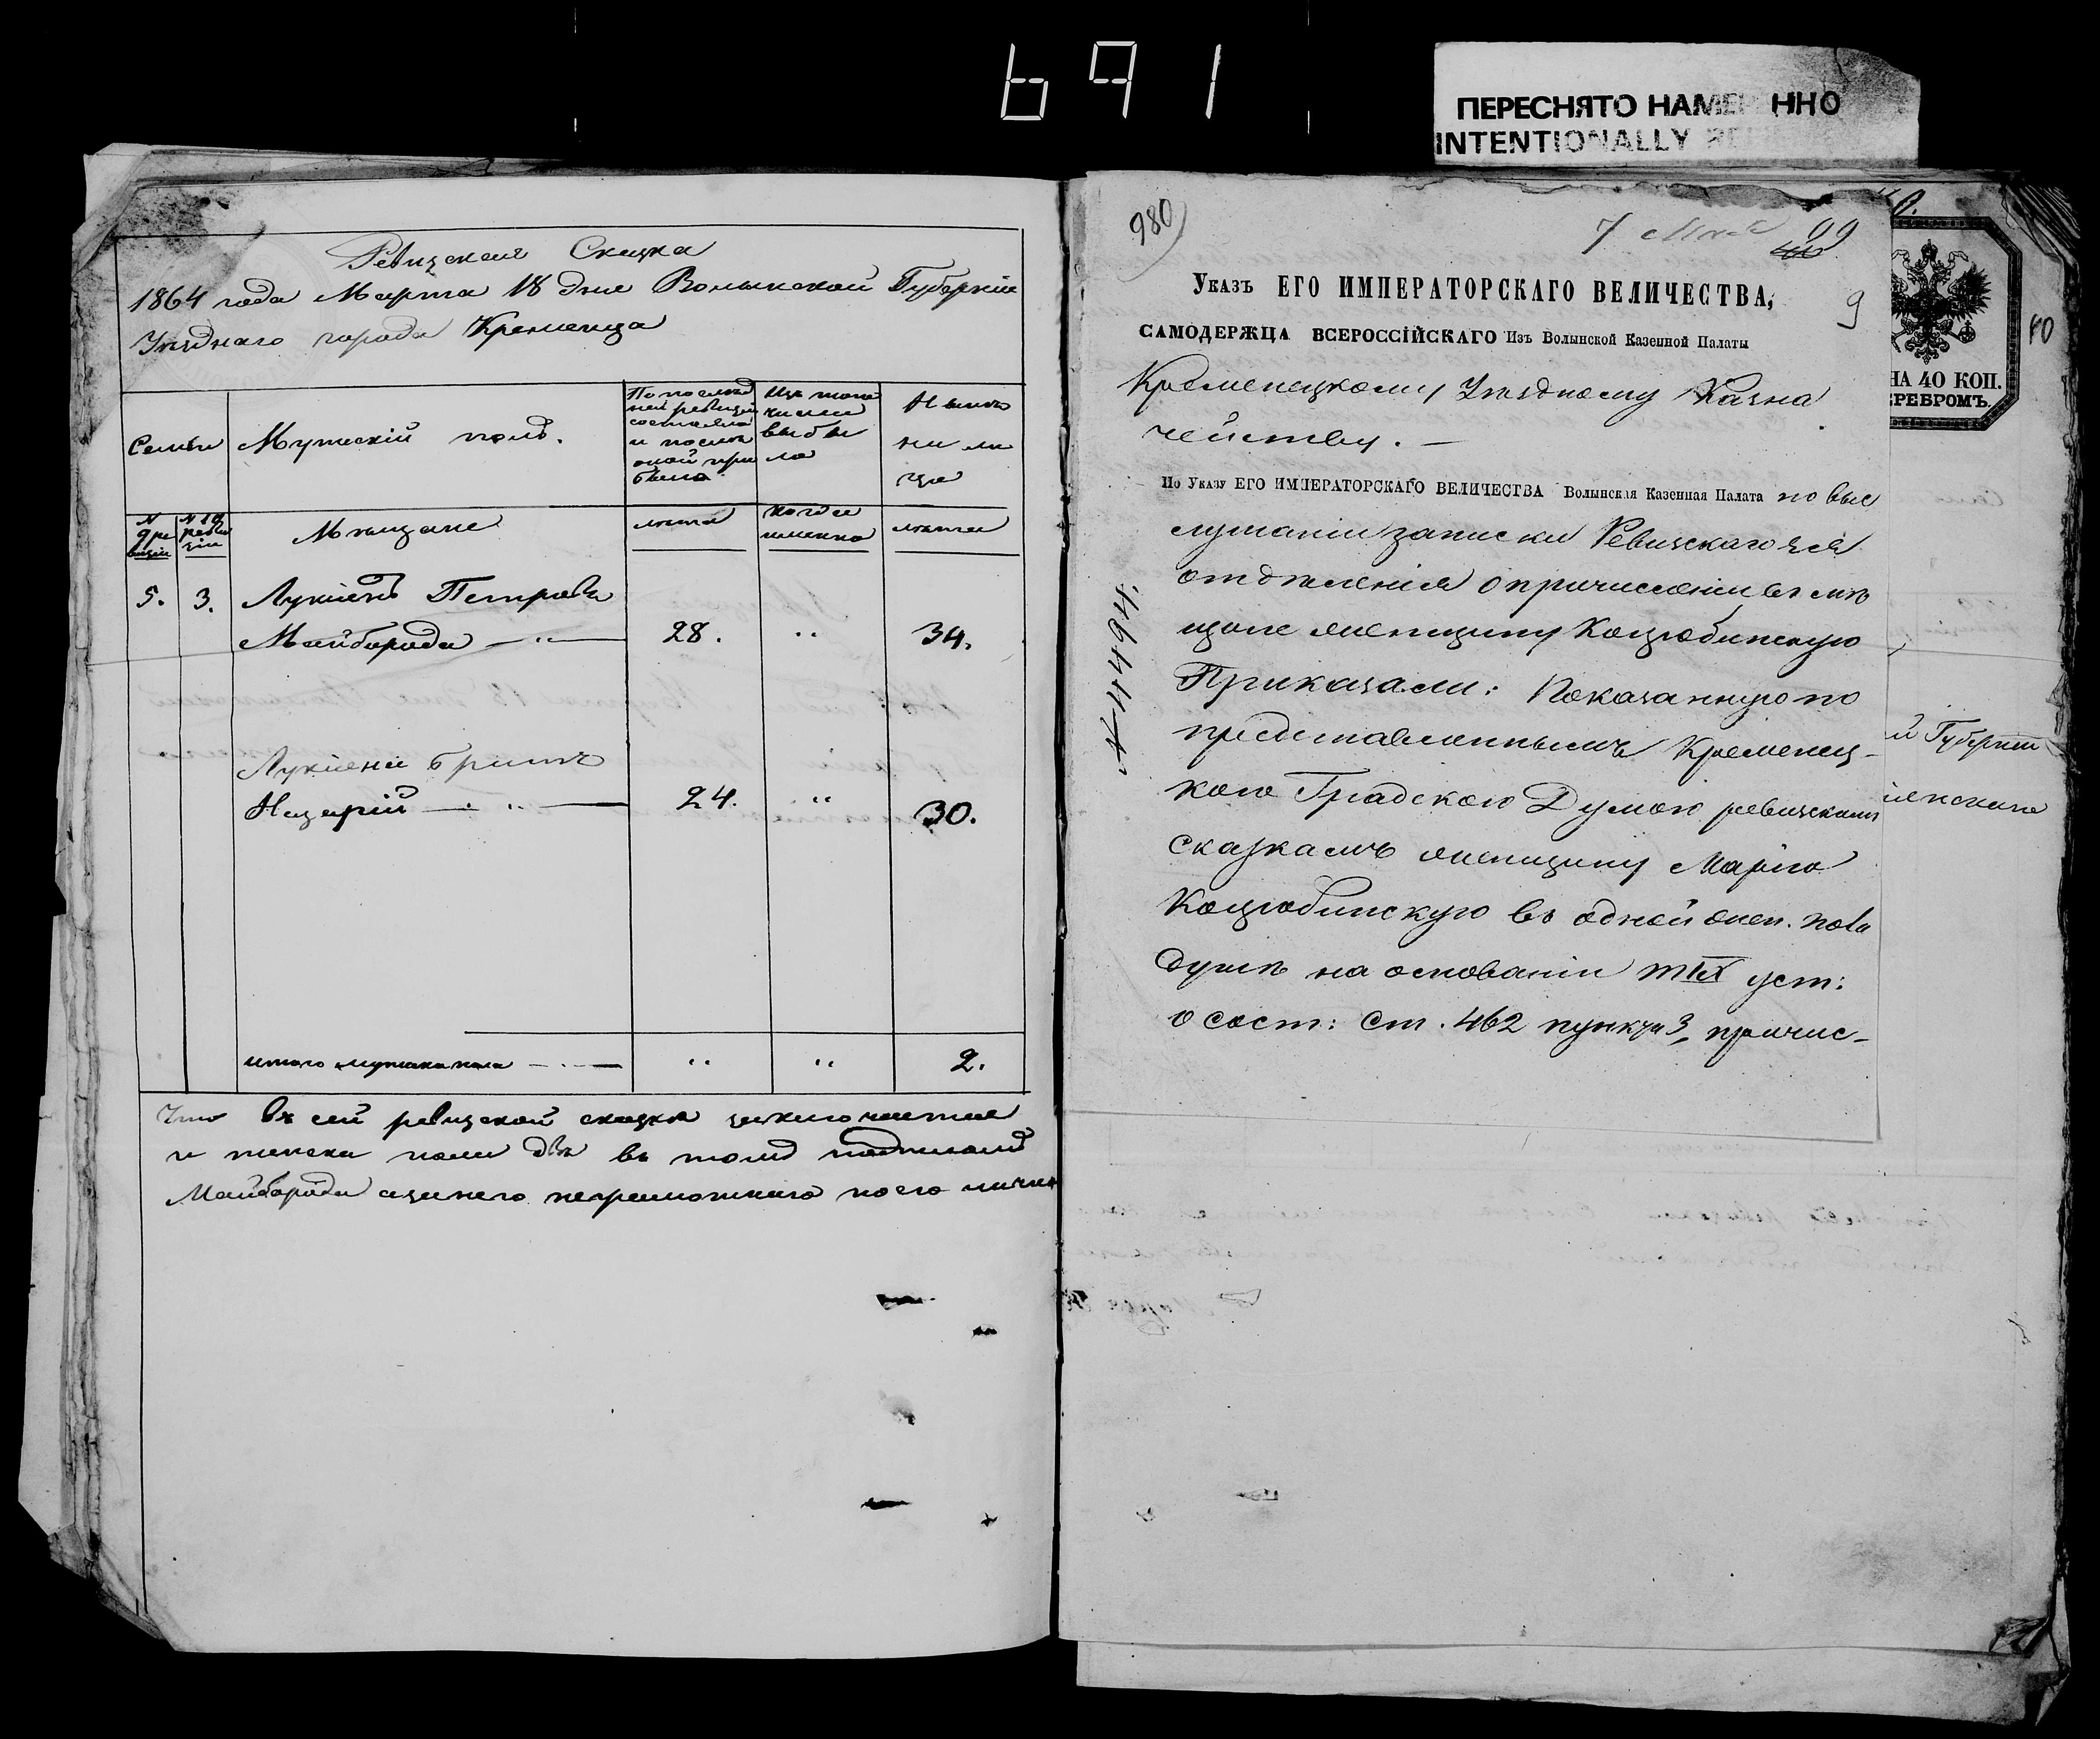 691
ПЕРЕСНЯТО НАМЕР ННО
INTENTIONALLY RE
Ревизская Сказка
1864 года Марта 18 дня Волынской Губерніи
Уѣзднаго города Кременца
Семьи
Мужескій полъ.
По послѣд
ней ревизіи
состояло
и послѣ
оной при
было
Изъ того
числа
выбы
ло
Нынѣ
на ли
цо
№
9 ре
визіи
№ 10
реви
зіи
Мѣщане
лѣта
когда
именно
лѣта
5. 3. Лукіянъ Петровъ
Майборода — " — 28. " 34.
Лукіяна братъ
Назарій — " — 24. " 30.
итого мужска пола — " — " " 2.
Что въ сей ревизской сказкѣ заключается
и женска пола двѣ въ томъ подписалъ
Майборода а за него неграмотнаго по его личн
980
7 Мая 99
9
Указъ ЕГО ИМПЕРАТОРСКАГО ВЕЛИЧЕСТВА,
САМОДЕРЖЦА ВСЕРОССІЙСКАГО Изъ Волынской Казенной Палаты
Кременецкому Уѣздному Казна
чейству. —
По Указу ЕГО ИМПЕРАТОРСКАГО ВЕЛИЧЕСТВА Волынская Казенная Палата по выс
лушаніи записки Ревизскаго
отдѣленія о причисленіи въ мѣ
щане женщину Коцюбинскую
Приказали: Показанную по
представленнымъ Кременец-
кою Градскою Думою ревизскимъ
сказкамъ женщину Марію
Коцюбинскую въ одной жен. пола
душѣ на основаніи т IX уст:
о сост: ст. 462 пункта 3, причис-
НА 40 КОП.
СРЕБРОМЪ.
10
й Губерніи